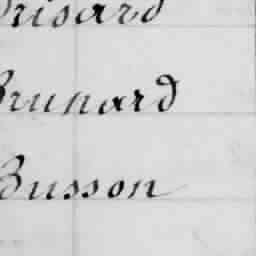 Brisard
Brunard
Busson